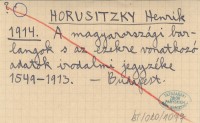 HORUSITZKY Henrik
1914. A magyarországi bar-
langok s az ezekre vonatkozó
adatok irodalmi jegyzéke
1549-1913. — Budapest.